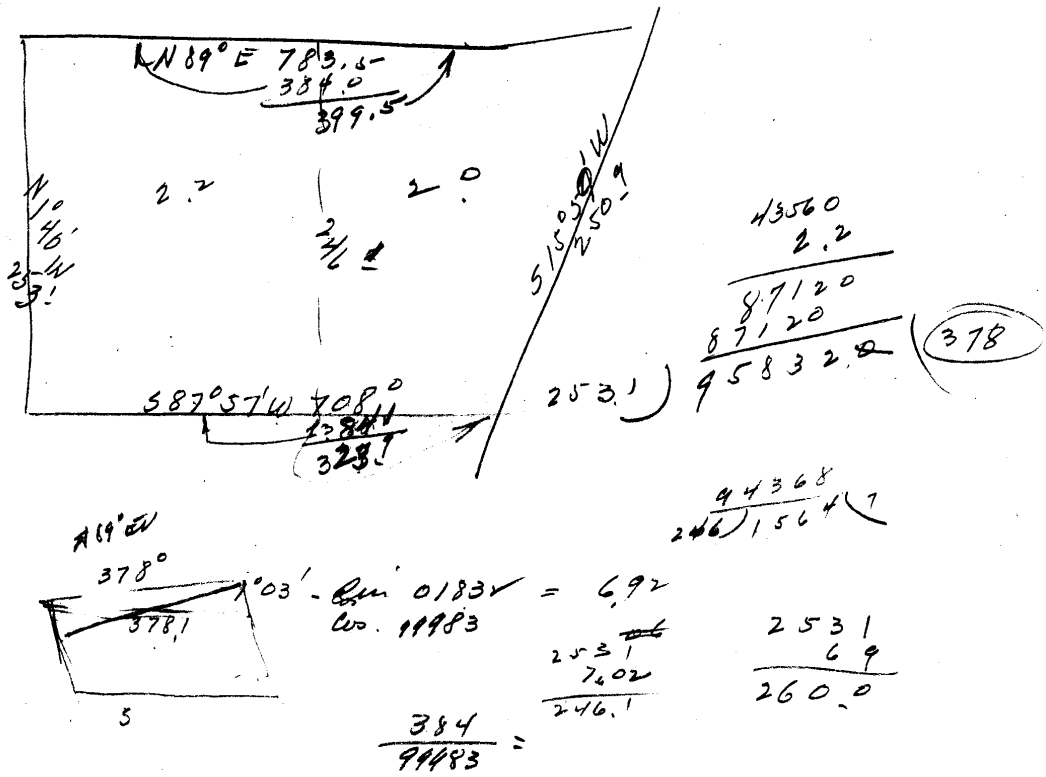 N 89° E 783.5
384.0
399.5
2.2
2.0
N
1°
46'
W
253.1
246.1
S 15° 50' W
250.9
S 87° 57' W 708.0
384.1
323.9
43560
2.2
87120
87120
95832.0
253.1
378
94368
246 1564
N 89° E
378°
1°03' - Sin 01832 = 6.92
378.1
Cos. 99983
253.1
7.02
246.1
2531
69
260.0
S
384
99983 =